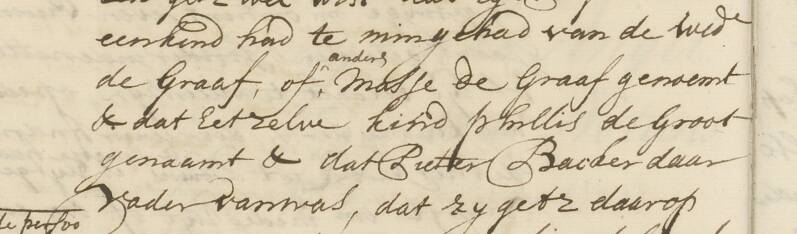 eenkind had te mingehad van de wede
de Graaf, of anders Masje de Graaf genoemt
& dat Eetzelve kind phillis de Groot
genaamt & dat Pieter Backer daar
vader vanwas, dat zy getz daarop
de persoo